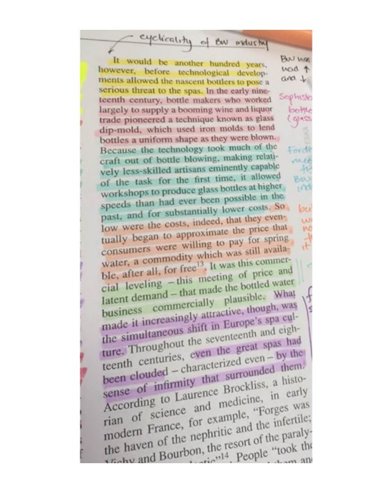 cyclicality of BW industry
It would be another hundred years,
however, before technological develop-
ments allowed the nascent bottlers to pose a
serious threat to the spas. In the early nine-
teenth century, bottle makers who worked
largely to supply a booming wine and liquor
trade pioneered a technique known as glass
dip-mold, which used iron molds to lend
bottles a uniform shape as they were blown.
Because the technology took much of the
craft out of bottle blowing, making relati-
vely less-skilled artisans eminently capable
of the task for the first time, it allowed
workshops to produce glass bottles at higher
speeds than had ever been possible in the
past, and for substantially lower costs. So
low were the costs, indeed, that they even-
tually began to approximate the price that
consumers were willing to pay for spring
water, a commodity which was still availa-
ble, after all, for free13 It was this commer-
cial leveling – this meeting of price and
latent demand – that made the bottled water
business commercially plausible. What
made it increasingly attractive, though, was
the simultaneous shift in Europe's spa cul-
ture. Throughout the seventeenth and eigh-
teenth centuries, even the great spas had
been clouded – characterized even – by the
sense of infirmity that surrounded them.
According to Laurence Brockliss, a histo-
rian of science and medicine, in early
modern France, for example, "Forges was
the haven of the nephritic and the infertile;
Vichy and Bourbon, the resort of the paraly-
14 People "took the
BW was
had ↑
and ↓
bottle